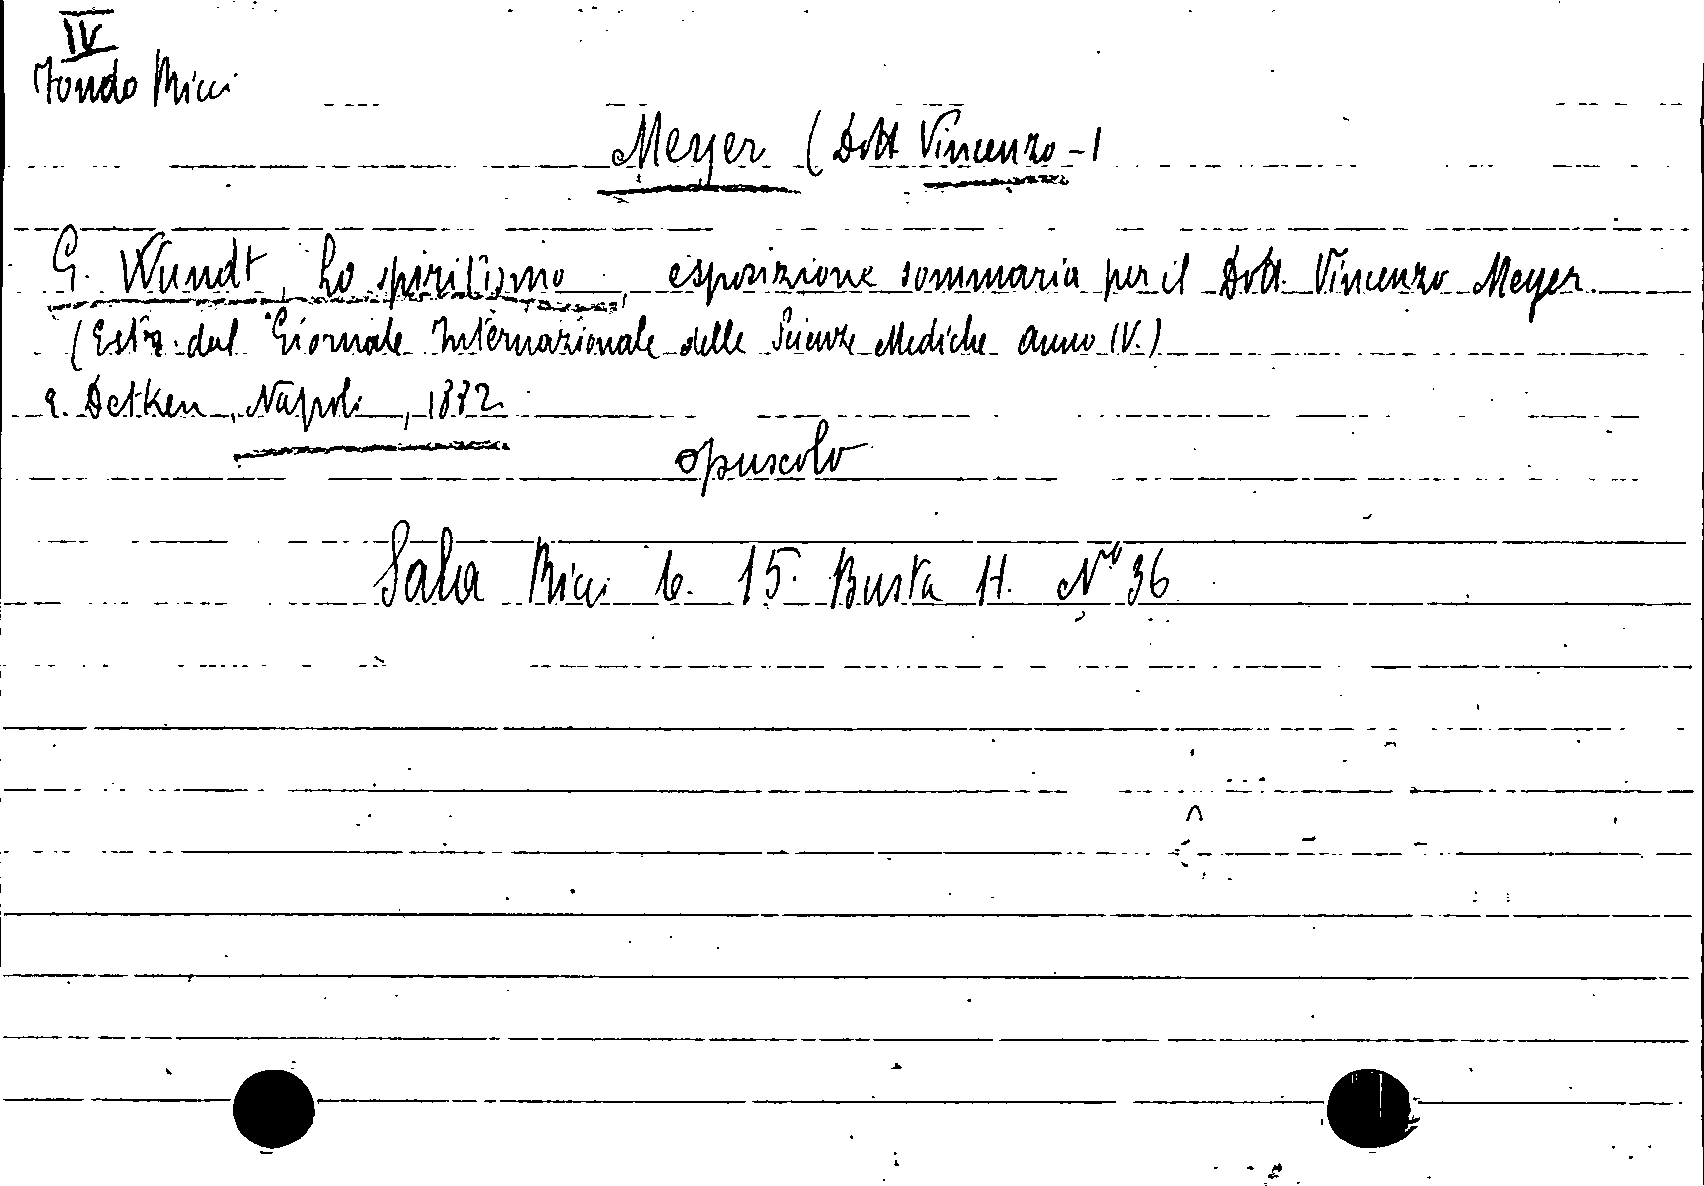 IV
Fondo Ricci
Meyer (Dott Vincenzo -)
G. Wundt, Lo spiritismo, esposizione sommaria per il Dott. Vincenzo Meyer.
(Estr. dal Giornale Internazionale delle Scienze Mediche anno IV.)
e. Detken, Napoli, 1882
opuscolo
Sala Ricci 6. 15. Busta H. No 36